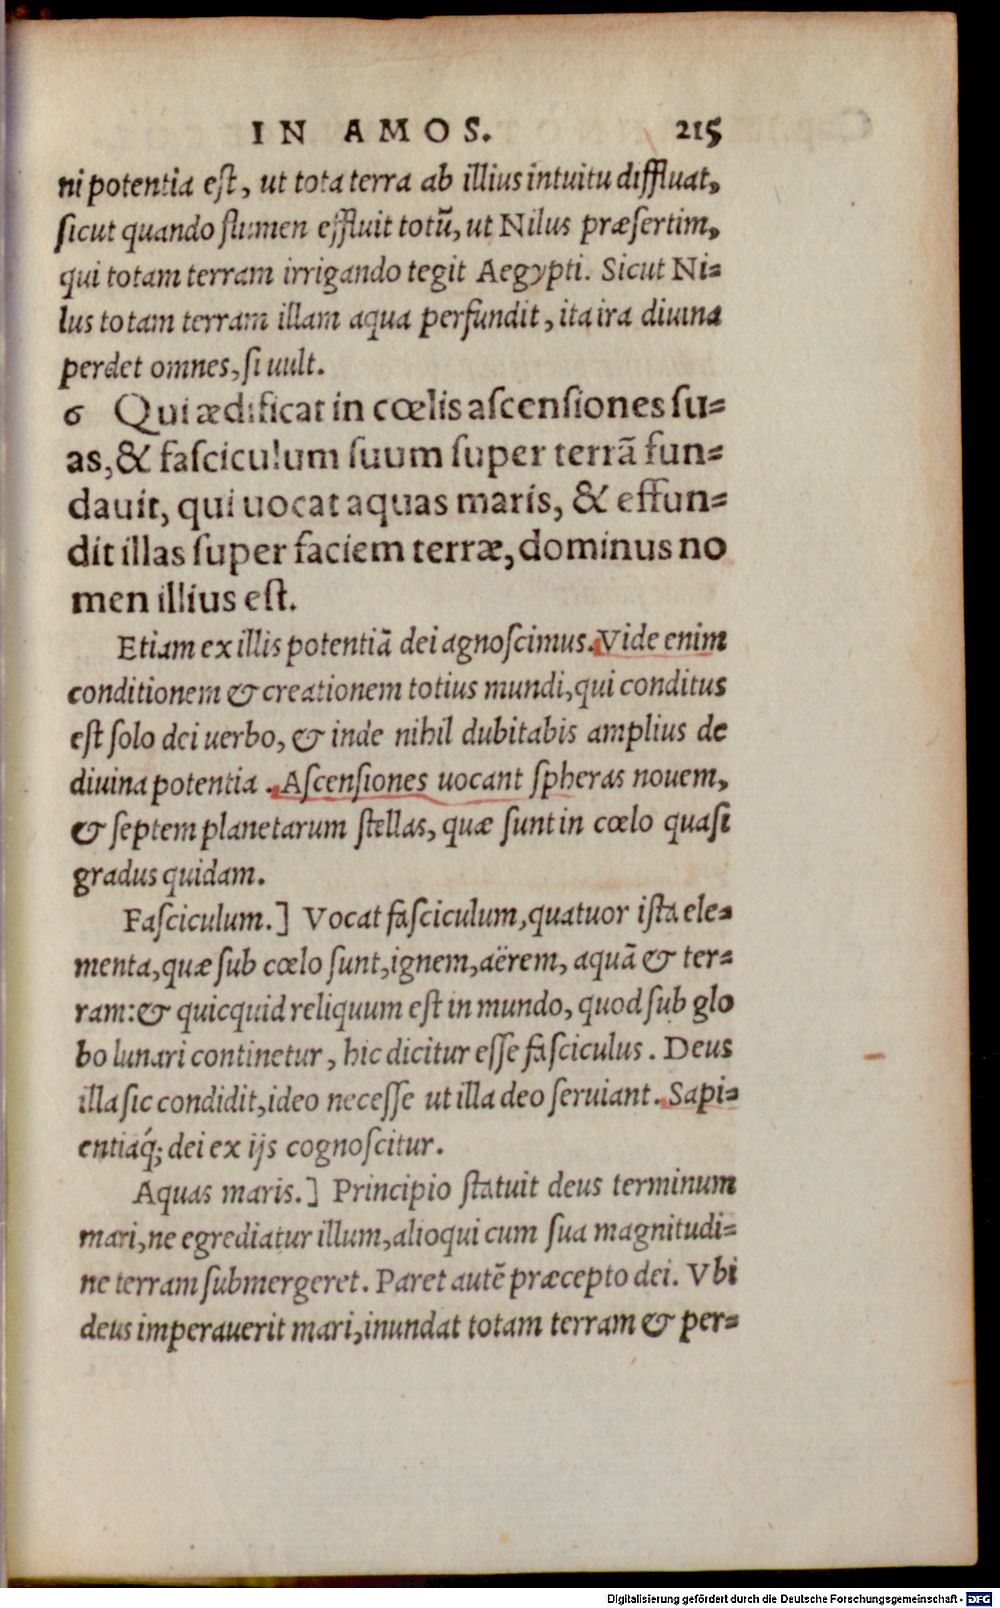 IN AMOS. 215
ni potentia eſt, ut tota terra ab illius intuitu diffluat,
ſicut quando flumen effluit totũ, ut Nilus præſertim,
qui totam terram irrigando tegit Aegypti. Sicut Ni-
lus totam terram illam aqua perfundit, ita ira diuina
perdet omnes, ſi uult.
6 Qui ædificat in cœlis aſcenſiones ſu-
as, & faſciculum ſuum ſuper terrã fun-
dauit, qui uocat aquas maris, & effun-
dit illas ſuper faciem terræ, dominus no
men illius eſt.
Etiam ex illis potentiã dei agnoſcimus. Vide enim
conditionem & creationem totius mundi, qui conditus
eſt ſolo dei uerbo, & inde nihil dubitabis amplius de
diuina potentia. Aſcenſiones uocant ſpheras nouem,
& ſeptem planetarum ſtellas, quæ ſunt in cœlo quaſi
gradus quidam.
Faſciculum.] Vocat faſciculum, quatuor iſta ele-
menta, quæ ſub cœlo ſunt, ignem, aërem, aquã & ter-
ram: & quicquid reliquum eſt in mundo, quod ſub glo
bo lunari continetur, hic dicitur eſſe faſciculus. Deus
illa ſic condidit, ideo neceſſe ut illa deo ſeruiant. Sapi-
entiaq́; dei ex ijs cognoſcitur.
Aquas maris.] Principio ſtatuit deus terminum
mari, ne egrediatur illum, alioqui cum ſua magnitudi-
ne terram ſubmergeret. Paret autẽ præcepto dei. Vbi
deus imperauerit mari, inundat totam terram & per-
Digitalisierung gefördert durch die Deutsche Forschungsgemeinschaft - DFG